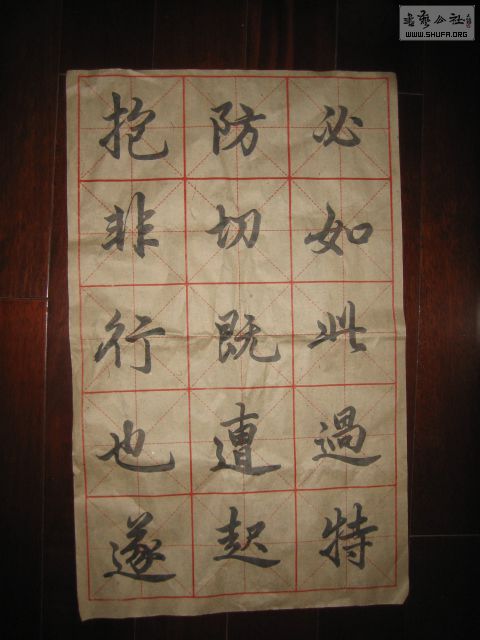 必如此過特
防切既遭起
抱非行也遂
书艺公社
WWW.SHUFA.ORG